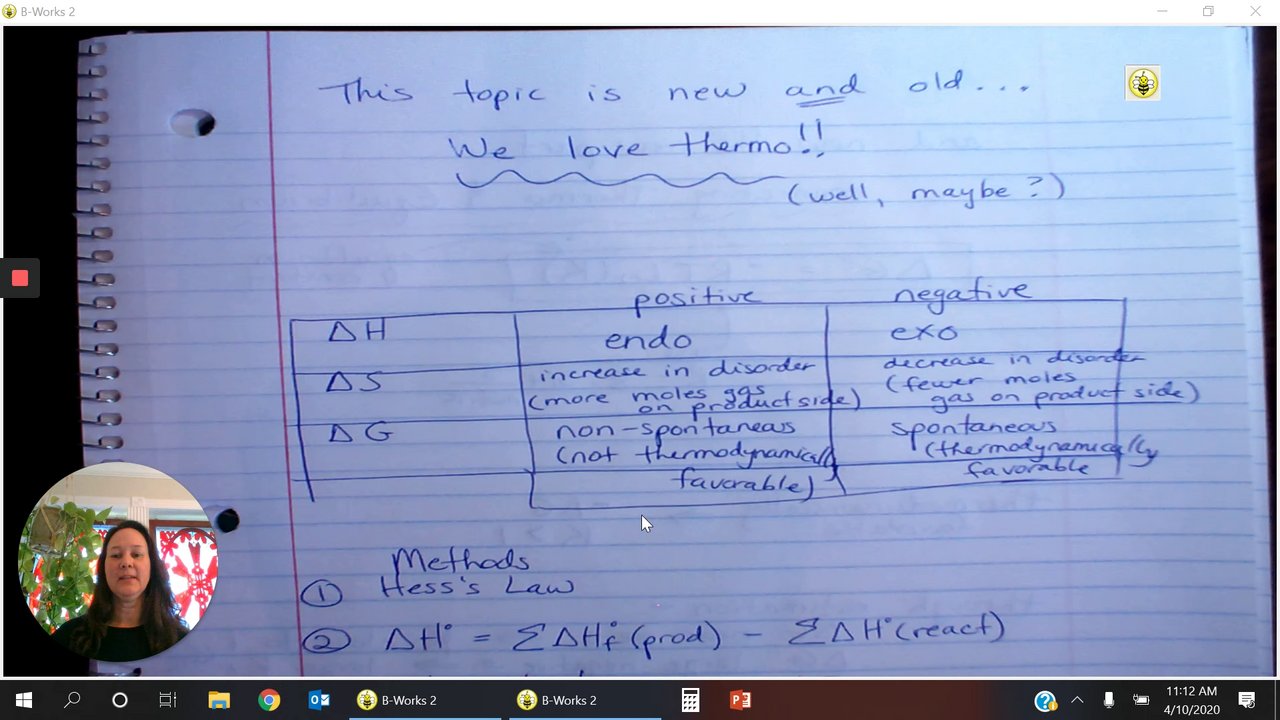 B-Works 2
This topic is new and old...
We love thermo!!
(well, maybe?)
positive negative
ΔH endo exo
ΔS increase in disorder (more moles gas on product side) decrease in disorder (fewer moles gas on product side)
ΔG non-spontaneous (not thermodynamically favorable) spontaneous (thermodynamically favorable
Methods
① Hess's Law
② ΔH° = ΣΔHf°(prod) - ΣΔH°(react)
B-Works 2 B-Works 2
11:12 AM
4/10/2020